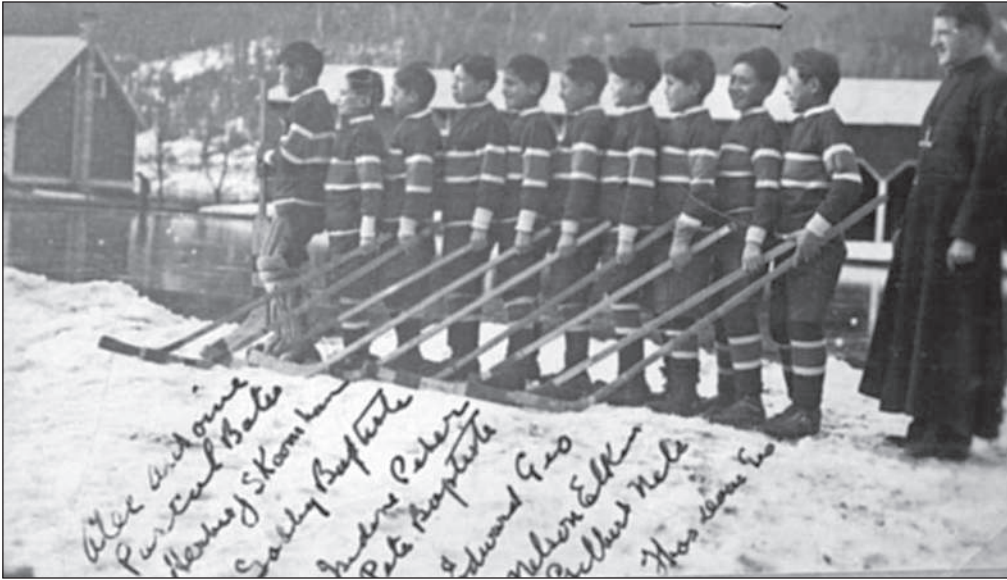 Alec Antoine
Patrick Bates
Herby Skoonhan
Sally Baptiste
Isidore Peter
Pete Baptiste
Edward Geo
Nelson Elkin
Gilbert Nele
Geo